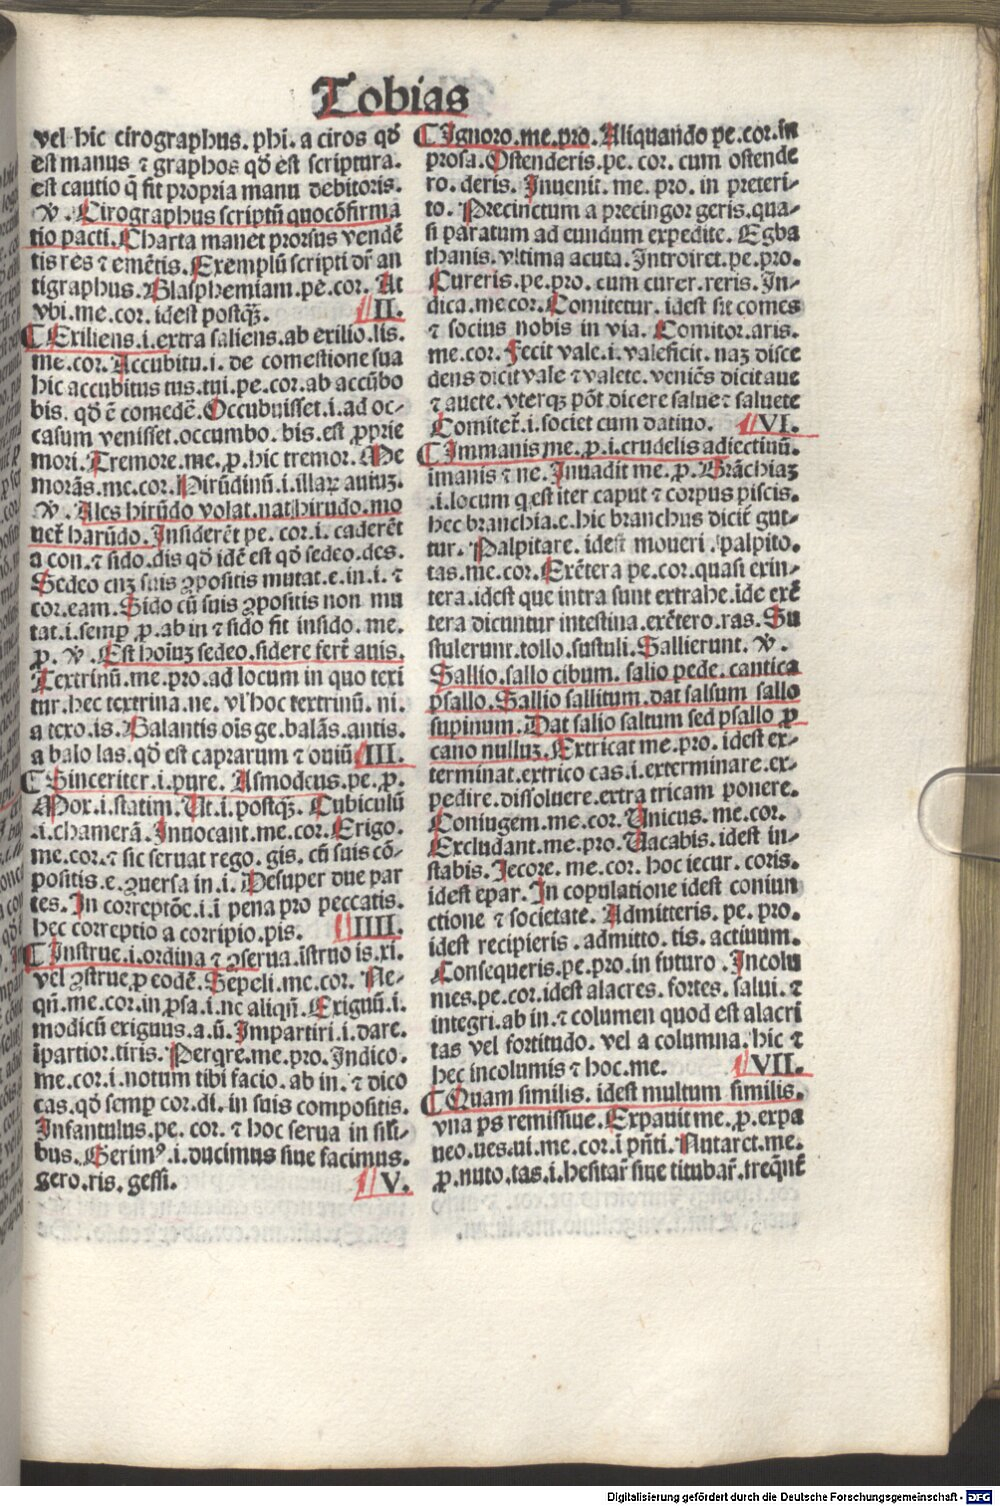 Tobias
vel hic cirographus. phi. a ciros qđ
est manus ⁊ graphos qđ est scriptura.
est cautio q̄ fit propria manu debitoris.
v̄. Cirographus scriptū quo cōfirma
tio pacti. Charta manet prorsus vendē
tis res ⁊ emētis. Exemplū scripti dr̄ an
tigraphus. Blasphemiam. pe. cor. At
vbi. me. cor. idest postqȝ. II.
Exiliens. i. extra saliens. ab exilio. lis.
me. cor. Accubitu. i. de comestione sua
hic accubitus tus. tui. pe. cor. ab accūbo
bis. qđ ē comedē. Occubuisset. i. ad oc-
casum venisset. occumbo. bis. est ꝓprie
mori. Tremore. me. ꝓ. hic tremor. Me
morās. me. cor. Hirūdinū. i. illaꝝ auiuȝ.
v̄. Ales hirūdo volat. nat hirudo. mo
uet̄ harūdo. Insiderēt pe. cor. i. caderēt
a con. ⁊ sido. dis qđ idē est qđ sedeo. des.
Sedeo cuȝ suis ꝯpositis mutat. e. in. i. ⁊
cor. eam. Sido cū suis ꝯpositis non mu
tat. i. semꝑ ꝓ. ab in ⁊ sido fit insido. me.
ꝓ. v̄. Est hoīuȝ sedeo. sidere fert̄ auis.
Textrinū. me. pro. ad locum in quo texi
tur. hec textrina. ne. vl' hoc textrinū. ni.
a texo. is. Balantis oīs ge. balās. antis.
a balo las. qđ est caprarum ⁊ ouiū III.
Sinceriter. i. pure. Asmodeus. pe. ꝓ.
Mox. i. statim. Ut. i. postqȝ. Cubiculū
.i. chamerā. Innocant. me. cor. Erigo.
me. cor. ⁊ sic seruat rego. gis. cū suis cō-
positis. e. ꝯuersa in. i. Desuper due par
tes. In correptōe. i. ī pena pro peccatis.
hec correptio a corripio. pis. IIII.
Instrue. i. ordina ⁊ ꝯserua. īstruo is. xi.
vel ꝯstrue. ꝑ eodē. Sepeli. me. cor. Ne-
qn̄. me. cor. in ꝓsa. i. ne aliqn̄. Exiguū. i.
modicū exiguus. a. ū. Impartiri. i. dare.
īpartior. tiris. Perqre. me. pro. Indico.
me. cor. i. notum tibi facio. ab in. ⁊ dico
cas. qđ semꝑ cor. di. in suis compositis.
Infantulus. pe. cor. ⁊ hoc serua in sili-
bus. Gerimꝰ. i. ducimus siue facimus.
gero. ris. gessi. V.
Ignoro. me. pro. Aliquando pe. cor. in
prosa. Ostenderis. pe. cor. cum ostende
ro. deris. Inuenit. me. pro. in preteri-
to. Precinctum a precingor geris. qua-
si paratum ad eundum expedite. Egba
thanis. vltima acuta. Introiret. pe. pro.
Cureris. pe. pro. cum curer. reris. In-
dica. me cor. Comitetur. idest sit comes
⁊ socius nobis in via. Comitor. aris.
me. cor. Fecit vale. i. valeficit. naȝ disce
dens dicit vale ⁊ valete. veniēs dicit aue
⁊ auete. vterqȝ pōt dicere salue ⁊ saluete
Comitet̄. i. societ cum datiuo. VI.
Immanis me. ꝓ. i. crudelis adiectiuū.
imanis ⁊ ne. Inuadit me. ꝓ. Brāchiaȝ
.i. locum q est iter caput ⁊ corpus piscis.
hec branchia. e. hic branchus dicit̄ gut-
tur. Palpitare. idest moueri. palpito.
tas. me. cor. Exētera pe. cor. quasi exin-
tera. idest que intra sunt extrahe. ide exē
tera dicuntur intestina. exētero. ras. Su
stulerunt. tollo. sustuli. Sallierunt. v̄.
Sallio. sallo cibum. salio pede. cantica
psallo. Sallio sallitum. dat salsum sallo
supinum. Dat salio saltum sed psallo ꝓ
cano nulluȝ. Extricat me. pro. idest ex-
terminat. extrico cas. i. exterminare. ex-
pedire. dissoluere. extra tricam ponere.
Coniugem. me. cor. Unicus. me. cor.
Excludant. me. pro. Uacabis. idest in-
stabis. Iecore. me. cor. hoc iecur. coris.
idest epar. In copulatione idest coniun
ctione ⁊ societate. Admitteris. pe. pro.
idest recipieris. admitto. tis. actiuum.
Consequeris. pe. pro. in futuro. Incolu
mes. pe. cor. idest alacres. fortes. salui. ⁊
integri. ab in. ⁊ columen quod est alacri
tas vel fortitudo. vel a columna. hic ⁊
hec incolumis ⁊ hoc. me. VII.
Quam similis. idest multum similis.
vna ps remissiue. Expauit me. ꝓ. expa
ueo. ues. ui. me. cor. ī pn̄ti. Nutaret. me.
ꝓ. nuto. tas. i. hesitar̄ siue titubar̄. treqn̄t
Digitalisierung gefördert durch die Deutsche Forschungsgemeinschaft - DFG